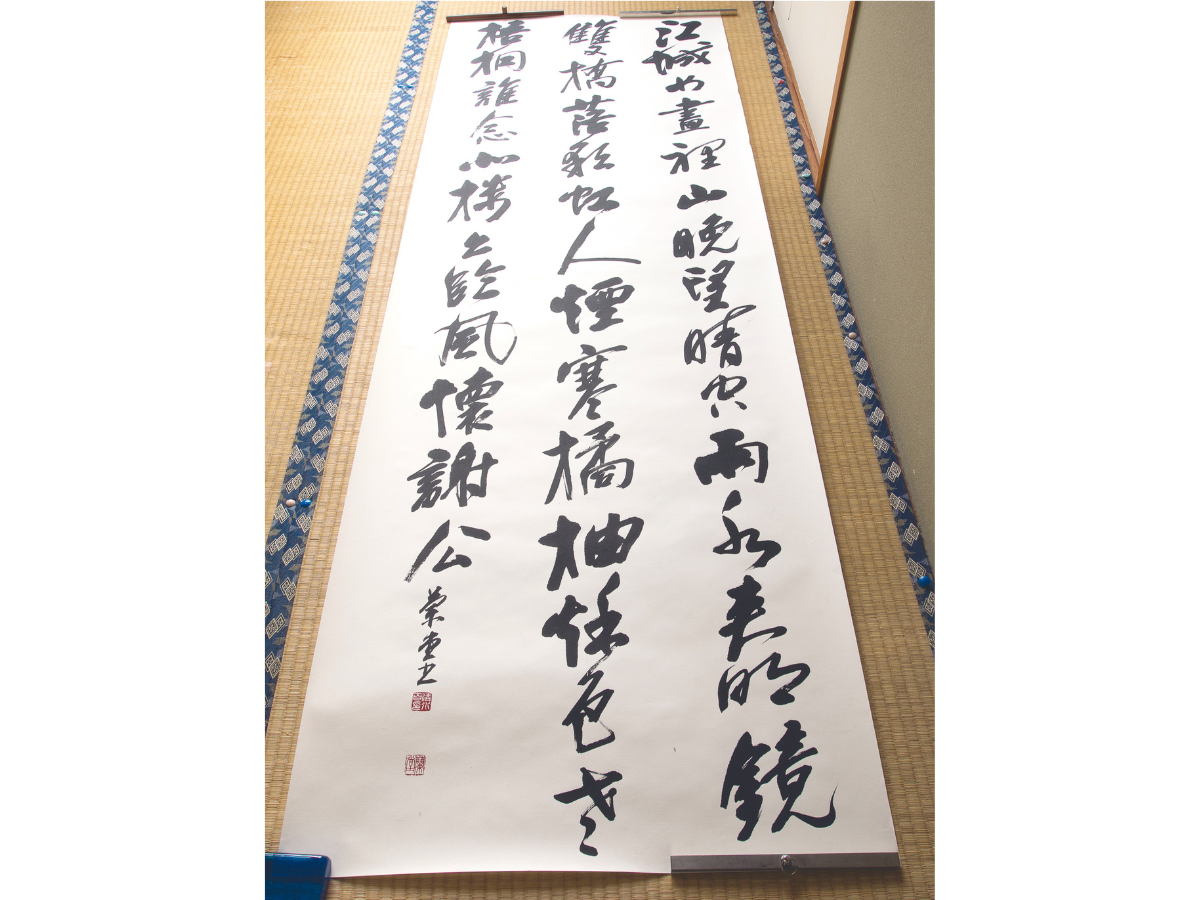 江城如畫裡山晚望晴空兩水夾明鏡
雙橋落彩虹人煙寒橘柚秋色老
梧桐誰念北樓上臨風懷謝公